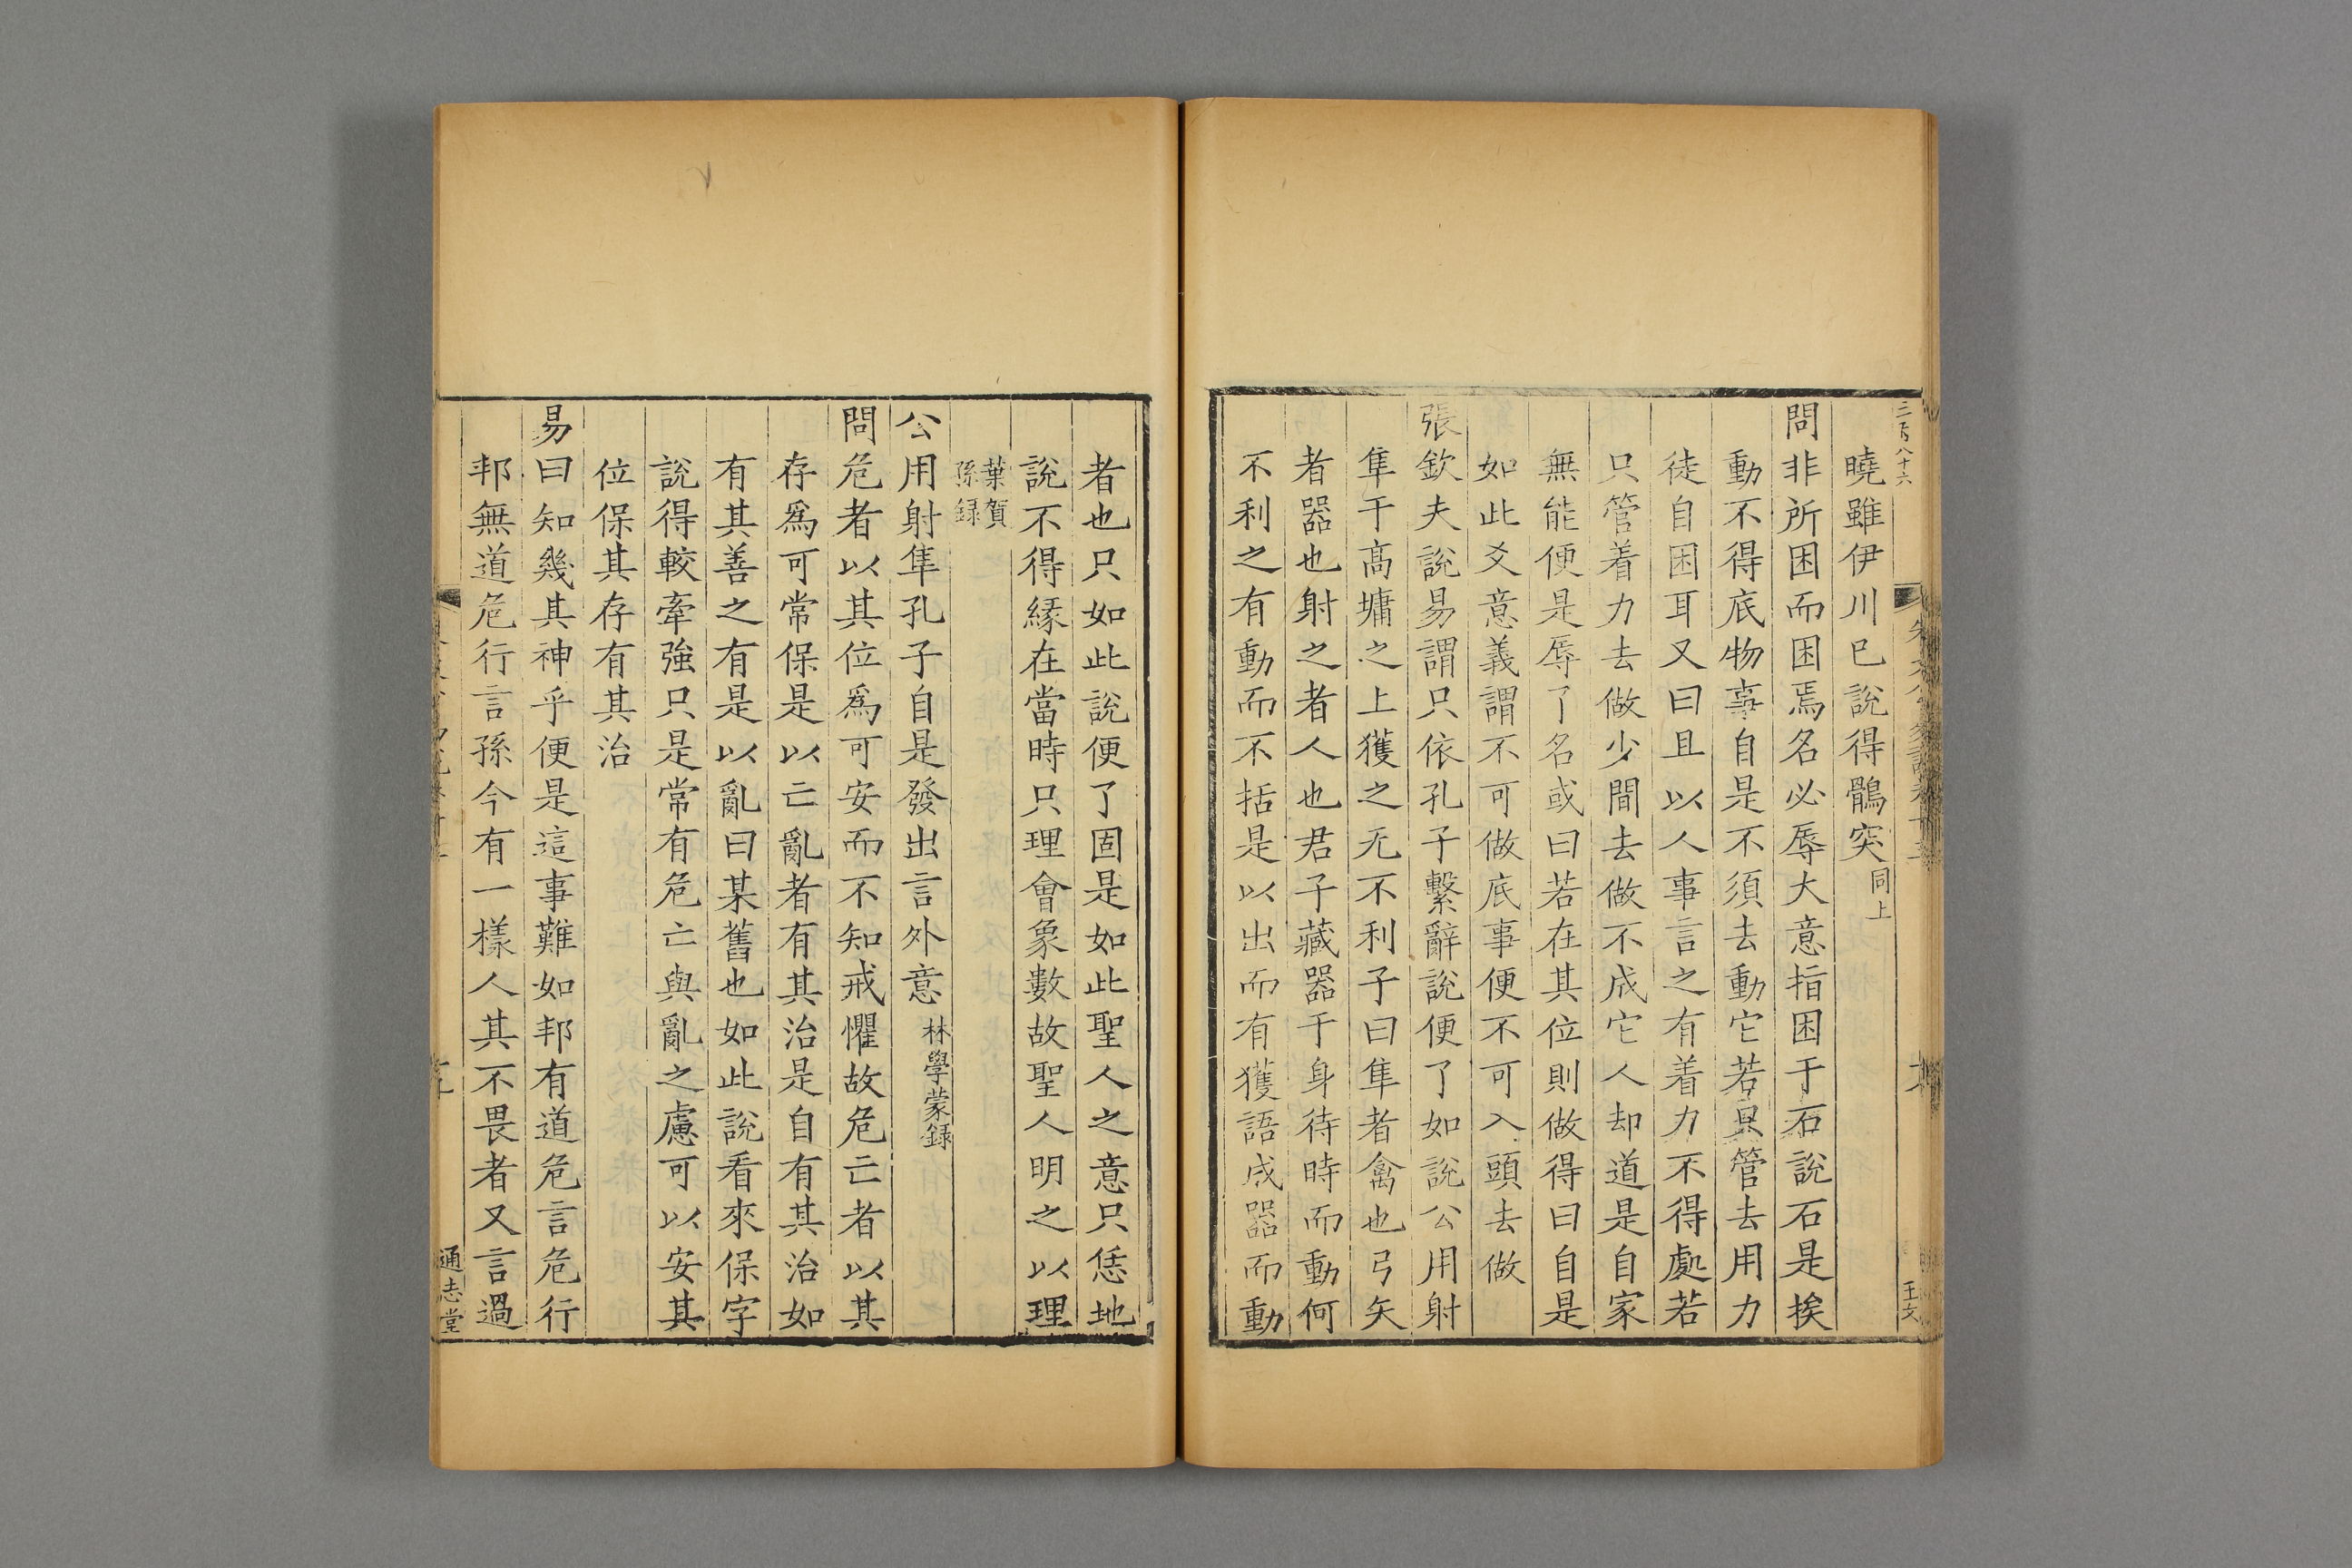 三百八十六
曉雖伊川已說得鶻突同上
問非所困而困焉名必辱大意指困于石說石是挨
動不得底物事自是不須去動它若只管去用力
徒自困耳又曰且以人事言之有着力不得處若
只管着力去做少間去做不成它人却道是自家
無能便是辱了名或曰若在其位則做得曰自是
如此爻意義謂不可做底事便不可入頭去做
張欽夫說易謂只依孔子繫辭說便了如說公用射
隼于高墉之上獲之无不利子曰隼者禽也弓矢
者器也射之者人也君子藏器于身待時而動何
不利之有動而不括是以出而有獲語成器而動
王文
者也只如此說便了固是如此聖人之意只恁地
說不得緣在當時只理會象數故聖人明之以理
葉賀
孫録
公用射隼孔子自是發出言外意林學蒙録
問危者以其位爲可安而不知戒懼故危亡者以其
存爲可常保是以亡亂者有其治是自有其治如
有其善之有是以亂曰某舊也如此說看來保字
說得較牽強只是常有危亡與亂之慮可以安其
位保其存有其治
易曰知幾其神乎便是這事難如邦有道危言危行
邦無道危行言孫今有一樣人其不畏者又言過
通志堂